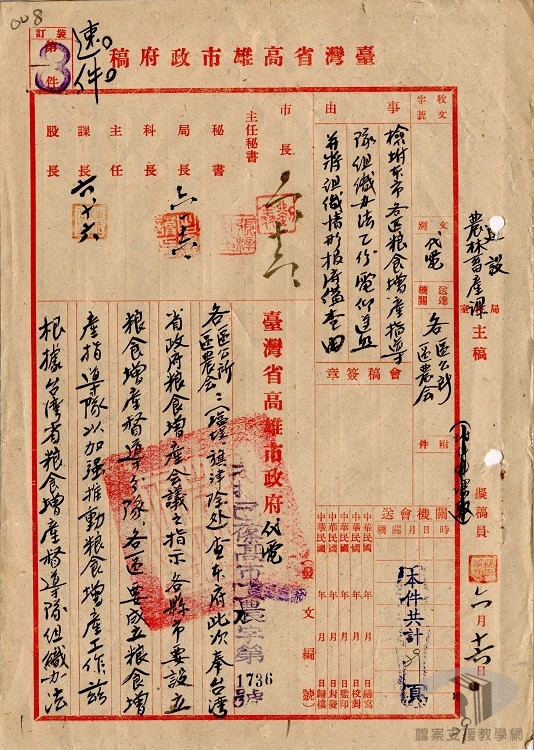 008
裝訂
第
3
件
速件。
臺灣省高雄市政府稿
收文
字號
文別
代電
送達機關
各區公所
區農會
附件
事由
檢附本市各區粮食增產指導
隊組織办法乙份電仰遵照
并將組織情形报府備查由
會稿簽章
市長
主任秘書
秘書
局長
科長
主任
課長
股長
六、十六
六、十六
六、十六
建設
農林畜產課
局室
主稿
擬稿員
六月十六日
關機會送
機關
月
日
時
中華民國 年 月 日繕寫
中華民國 年 月 日校對
中華民國 年 月 日監印
中華民國 年 月 日封發
中華民國 年 月 日歸檔
本件共計
頁
臺灣省高雄市政府代電
(發文編號)
農字第
1736
號
各區公所
區農會:(塩埕旗津除外)查本府此次奉台灣
省政府粮食增產会議之指示各縣市要設立
粮食增產督導分隊,各區要成立粮食增
產指導隊以加強推動粮食增產工作茲
根據台湾省粮食增產督導隊組織办法
檔案支援教學網